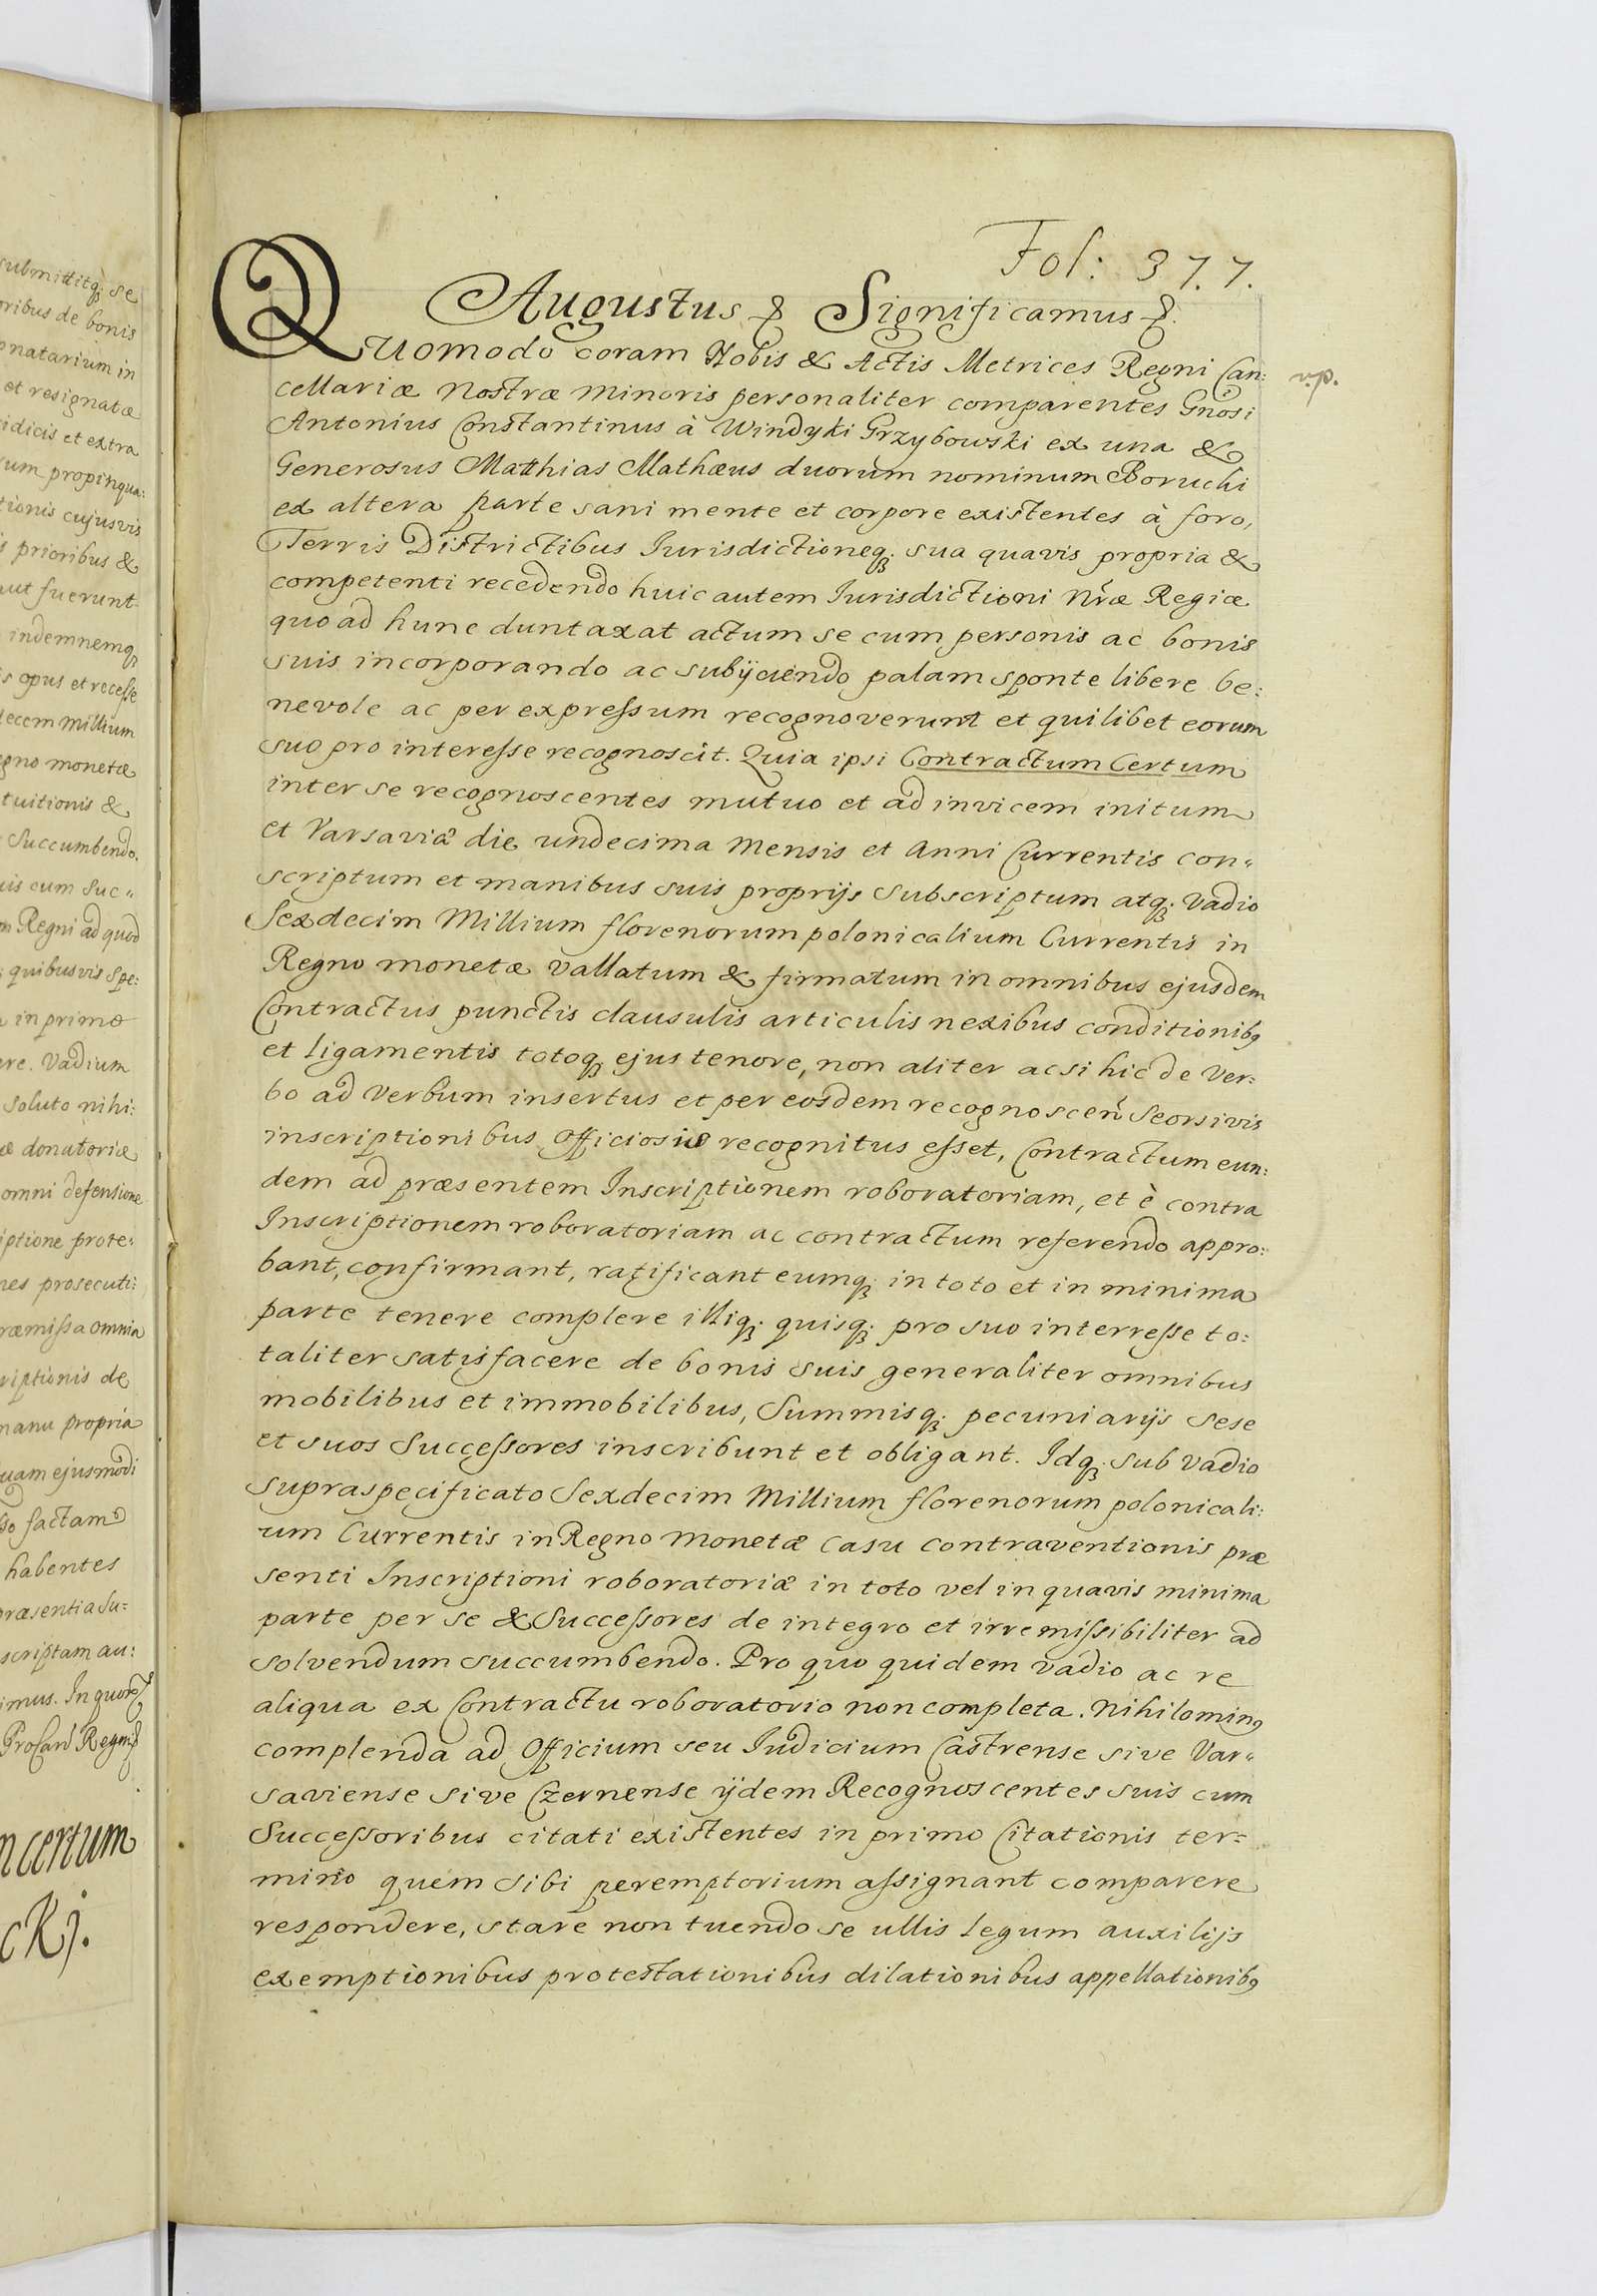 submittitq; se
oribus de bonis
onatarium in
et resignatæ
idicis et extra
um propinqua:
tionis cujusvis
is prioribus &
aut fuerunt
indemnemq;
s opus et recesse
decem Millium
egno monetæ
tuitionis &
Succumbendo.
uis cum Suc„
m Regni ad quod
quibusvis Spe:
in primo
ere. Vadium
soluto nihi:
æ donatoriæ
omni defensione
iptione prote:
nes prosecuti:
ræmissa omnia
riptionis de
manu propria
uam ejusmodi
so factam
habentes
præsentia Su=
scriptam au:
imus. In quor
Regni
n certum
cKj.
Fol: 377.
Augustus & Significamus &
Quomodo coram Nobis & Actis Metrices Regni Can:
cellariæ Nostræ Minoris personaliter comparentes Gnosi
Antonius Constantinus à Windyki Grzybowski ex una &
Generosus Matthias Mathæus duorum nominum Borucki
ex altera parte sani mente et corpore existentes à foro,
Terris Districtibus Iurisdictioneq; sua quavis propria &
competenti recedendo huic autem Iurisdictioni Nræ Regiæ
quo ad hunc duntaxat actum se cum personis ac bonis
suis incorporando ac subijciendo palam sponte libere be:
nevole ac per expressum recognoverunt et quilibet eorum
suo pro interesse recognoscit. Quia ipsi Contractum Certum
inter se recognoscentes mutuo et ad invicem initum
et Varsaviæ die undecima Mensis et Anni Currentis con„
scriptum et manibus suis proprijs Subscriptum atq; Vadio
Sexdecim Millium florenorum polonicalium Currentis in
Regno monetæ vallatum & firmatum in omnibus ejusdem
Contractus punctis clausulis articulis nexibus conditionibg
et ligamentis totoq; ejus tenore, non aliter acsi hic de Ver:
bo ad Verbum insertus et per eosdem recognoscen Seorsivis
inscriptionibus Officiose recognitus esset, Contractum eun:
dem ad præsentem Inscriptionem roboratoriam, et è contra
Inscriptionem roboratoriam ac contractum referendo appro:
bant, confirmant, ratificant eumq; in toto et in minima
parte tenere complere illiq; quisq; pro suo interresse to:
taliter satisfacere de bonis suis generaliter omnibus
mobilibus et immobilibus, Summisq; pecuniarijs sese
et suos Successores inscribunt et obligant. Idq; sub Vadio
supraspecificato Sexdecim Millium florenorum polonicali:
um Currentis in Regno Monetæ Casu contraventionis præ
senti Inscriptioni roboratoriæ in toto vel in quavis minima
parte per se & Successores de integro et irremissibiliter ad
solvendum succumbendo. Pro quo quidem vadio ac re
aliqua ex Contractu roboratorio non completa. Nihiloming
complenda ad Officium seu Iudicium Castrense sive Var„
saviense sive Czernense ijdem Recognoscentes suis cum
Successoribus citati existentes in primo Citationis ter=
mino quem sibi peremptorium assignant comparere
respondere, stare non tuendo se ullis legum auxilijs
exemptionibus protestationibus dilationibus appellationibg